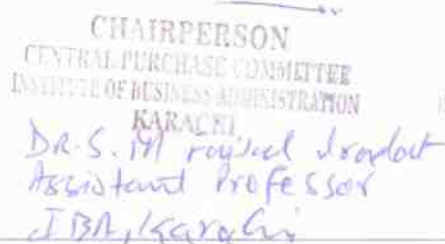 CHAIRPERSON
CENTRAL PURCHASE COMMITTEE
INSTITUTE OF BUSINESS ADMINISTRATION
KARACHI
DR. S. M
Assistant Professor
IBA, Karachi